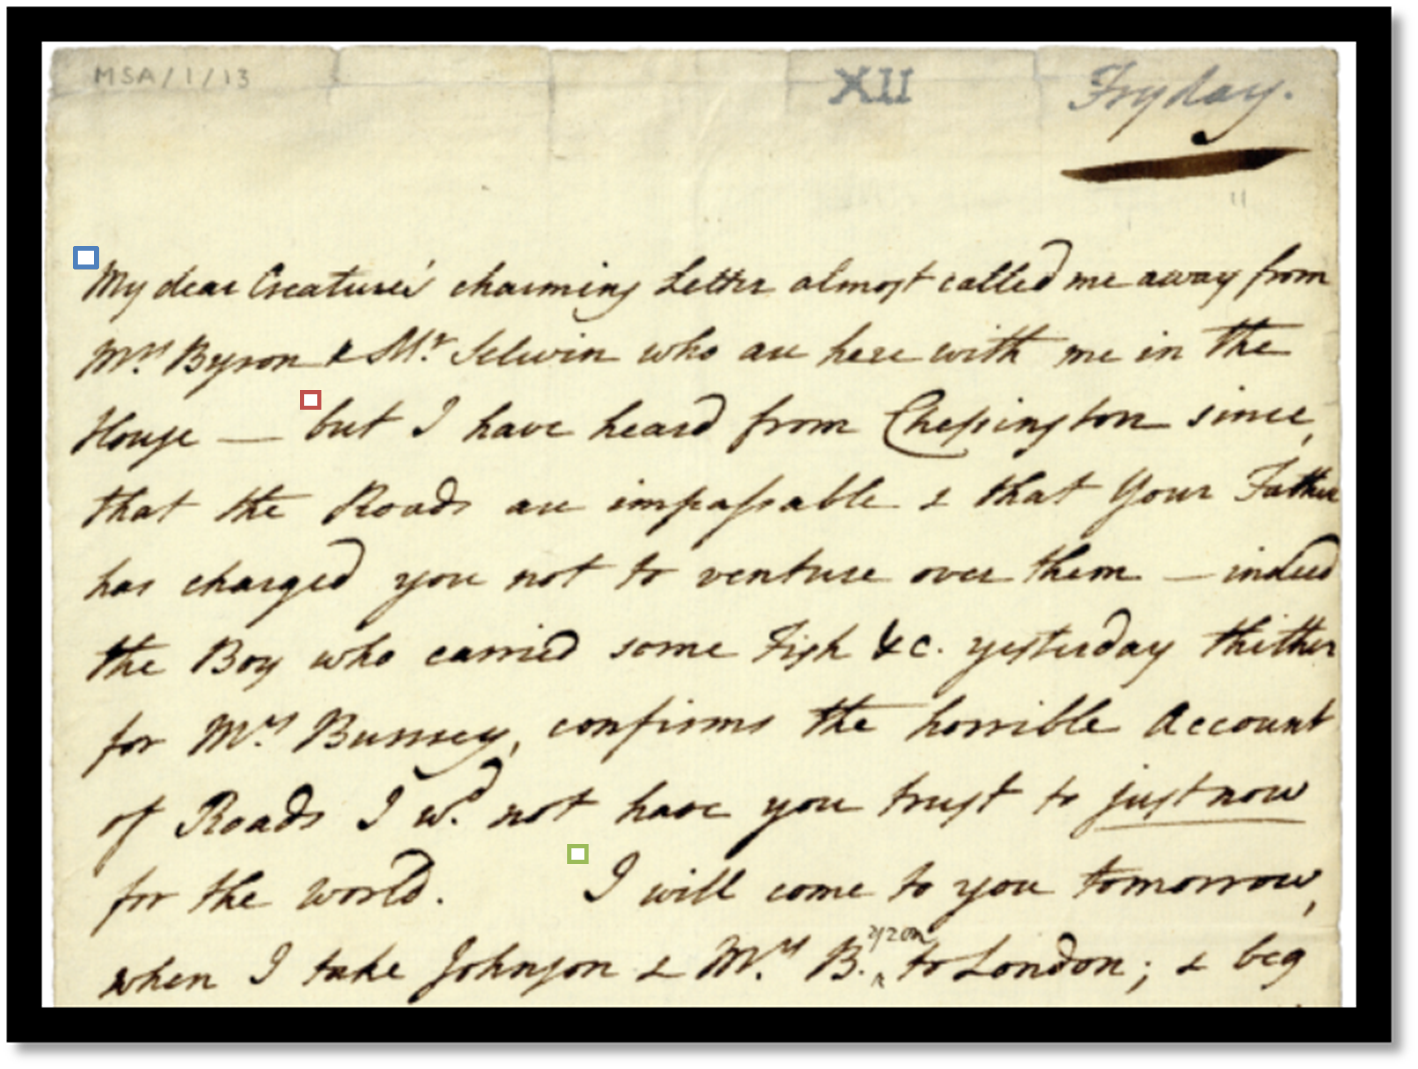 MSA/1/13
XII
Fryday.
11
My dear Creature's charming Letter almost called me away from
Mrs. Byron & Mr. Selwin who are here with me in the
House — but I have heard from Chessington since,
that the Roads are impassable & that Your Father
has charged you not to venture over them — indeed
the Boy who carried some Fish &c. yesterday thither
for Mrs. Burney, confirms the horrible Account
of Roads I wd. not have you trust to just now
for the world. I will come to you tomorrow,
when I take Johnson & Mrs. B.yron to London; & beg